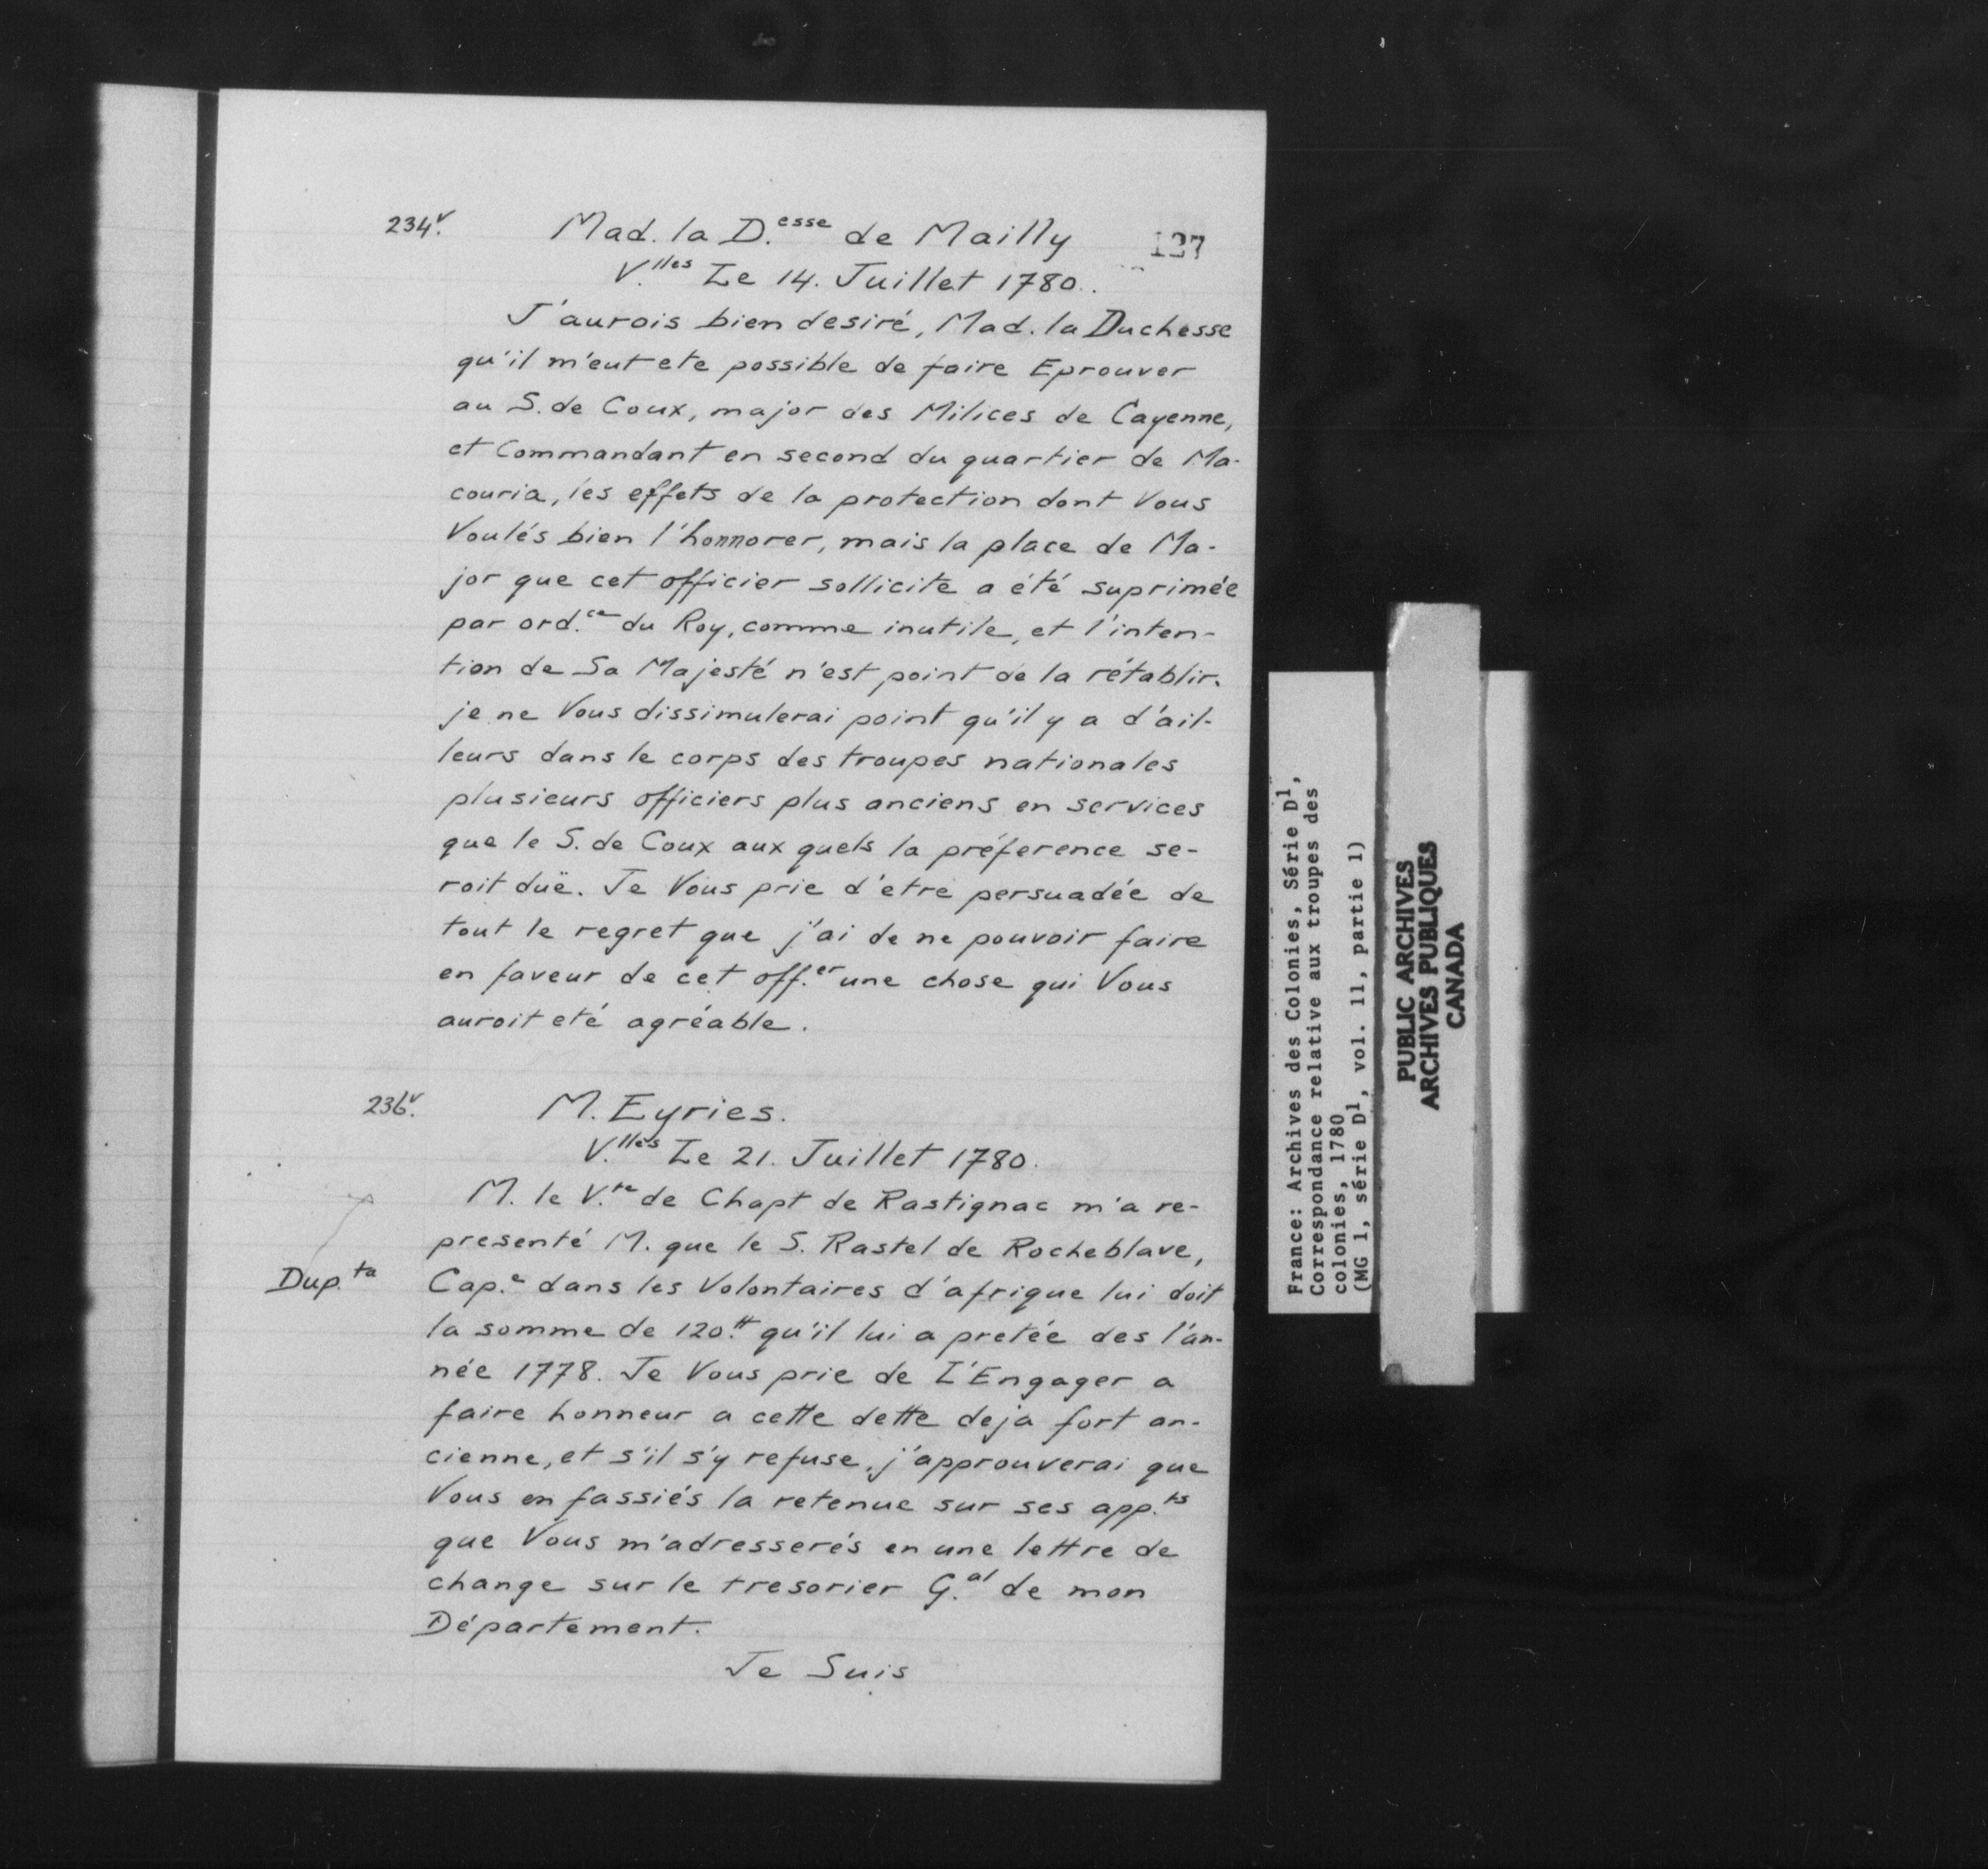 234v.
Mad. la D.esse de Mailly
127
V.lles Le 14. Juillet 1780.
J'aurois bien desiré, Mad. la Duchesse
qu'il m'eut ete possible de faire Eprouver
au S. de Coux, major des Milices de Cayenne,
et Commandant en second du quartier de Ma-
couria, les effets de la protection dont Vous
Voulés bien l'honnorer, mais la place de Ma-
jor que cet officier sollicite a été suprimée
par ord.ce du Roy, comme inutile, et l'inten-
tion de Sa Majesté n'est point de la rétablir.
je ne Vous dissimulerai point qu'il y a d'ail-
leurs dans le corps des troupes nationales
plusieurs officiers plus anciens en services
que le S. de Coux aux quels la préference se-
roit duë. Je Vous prie d'etre persuadée de
tout le regret que j'ai de ne pouvoir faire
en faveur de cet off.er une chose qui Vous
auroit eté agréable.
236v.
M. Eyries.
V.lles Le 21. Juillet 1780.
M. le V.te de Chapt de Rastignac m'a re-
presenté M. que le S. Rastel de Rocheblave,
Dup.ta
Cap.e dans les Volontaires d'afrique lui doit
la somme de 120.tt qu'il lui a pretée des l'an-
née 1778. Je Vous prie de L'Engager a
faire honneur a cette dette deja fort an-
cienne, et s'il s'y refuse, j'approuverai que
Vous en fassiés la retenue sur ses app.ts
que Vous m'adresserés en une lettre de
change sur le tresorier G.al de mon
Département.
Je Suis
France: Archives des Colonies, Série D1,
Correspondance relative aux troupes des
colonies, 1780
(MG 1, série D1, vol. 11, partie 1)
PUBLIC ARCHIVES
ARCHIVES PUBLIQUES
CANADA